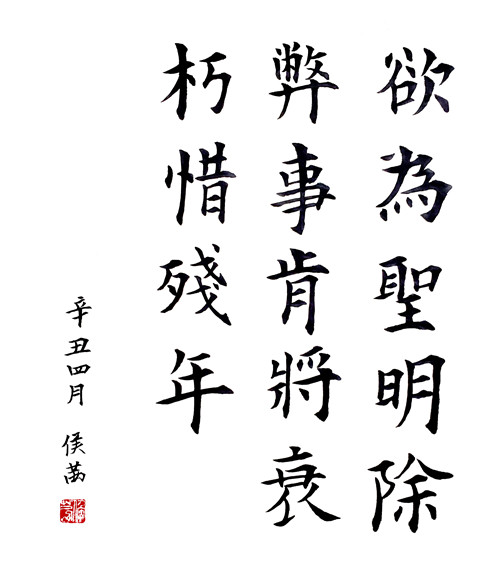 欲為聖明除
弊事肯將衰
朽惜殘年
辛丑四月 侯茜